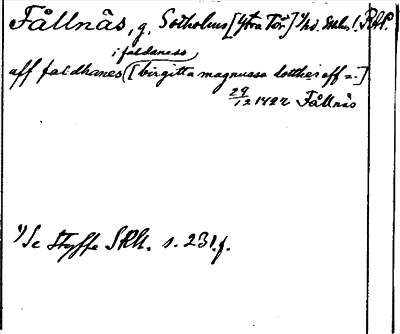 Fållnäs, g. Sotholms [Ytra Tör.] ¹/hd. Sthlms l. RAP.
i faldaness
aff faldhanes ([birgitta magnussa dotther aff =.]
29/12 1422 Fållnäs
¹/Se Styffe SRU. s. 231 f.